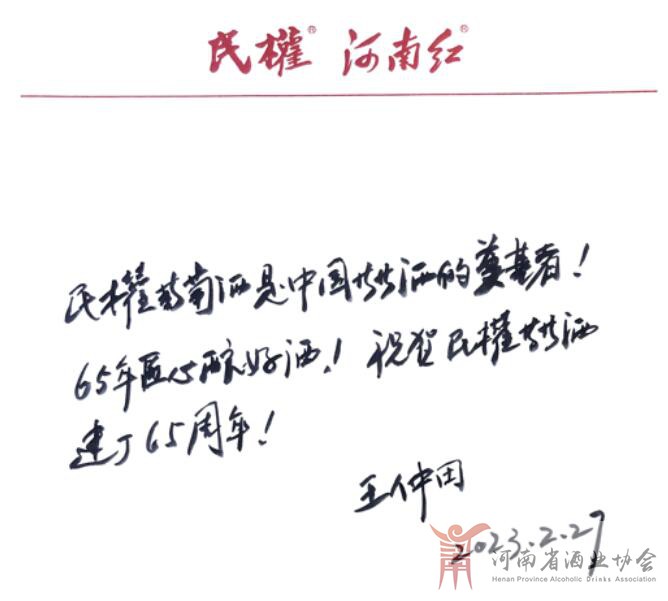 民權® 河南红®
民權葡萄酒是中国葡萄酒的奠基者！
65年匠心酿好酒！祝贺民權葡萄酒
建厂65周年！
王仲田
2023.2.27
河南省酒业协会
Henan Province Alcoholic Drinks Association